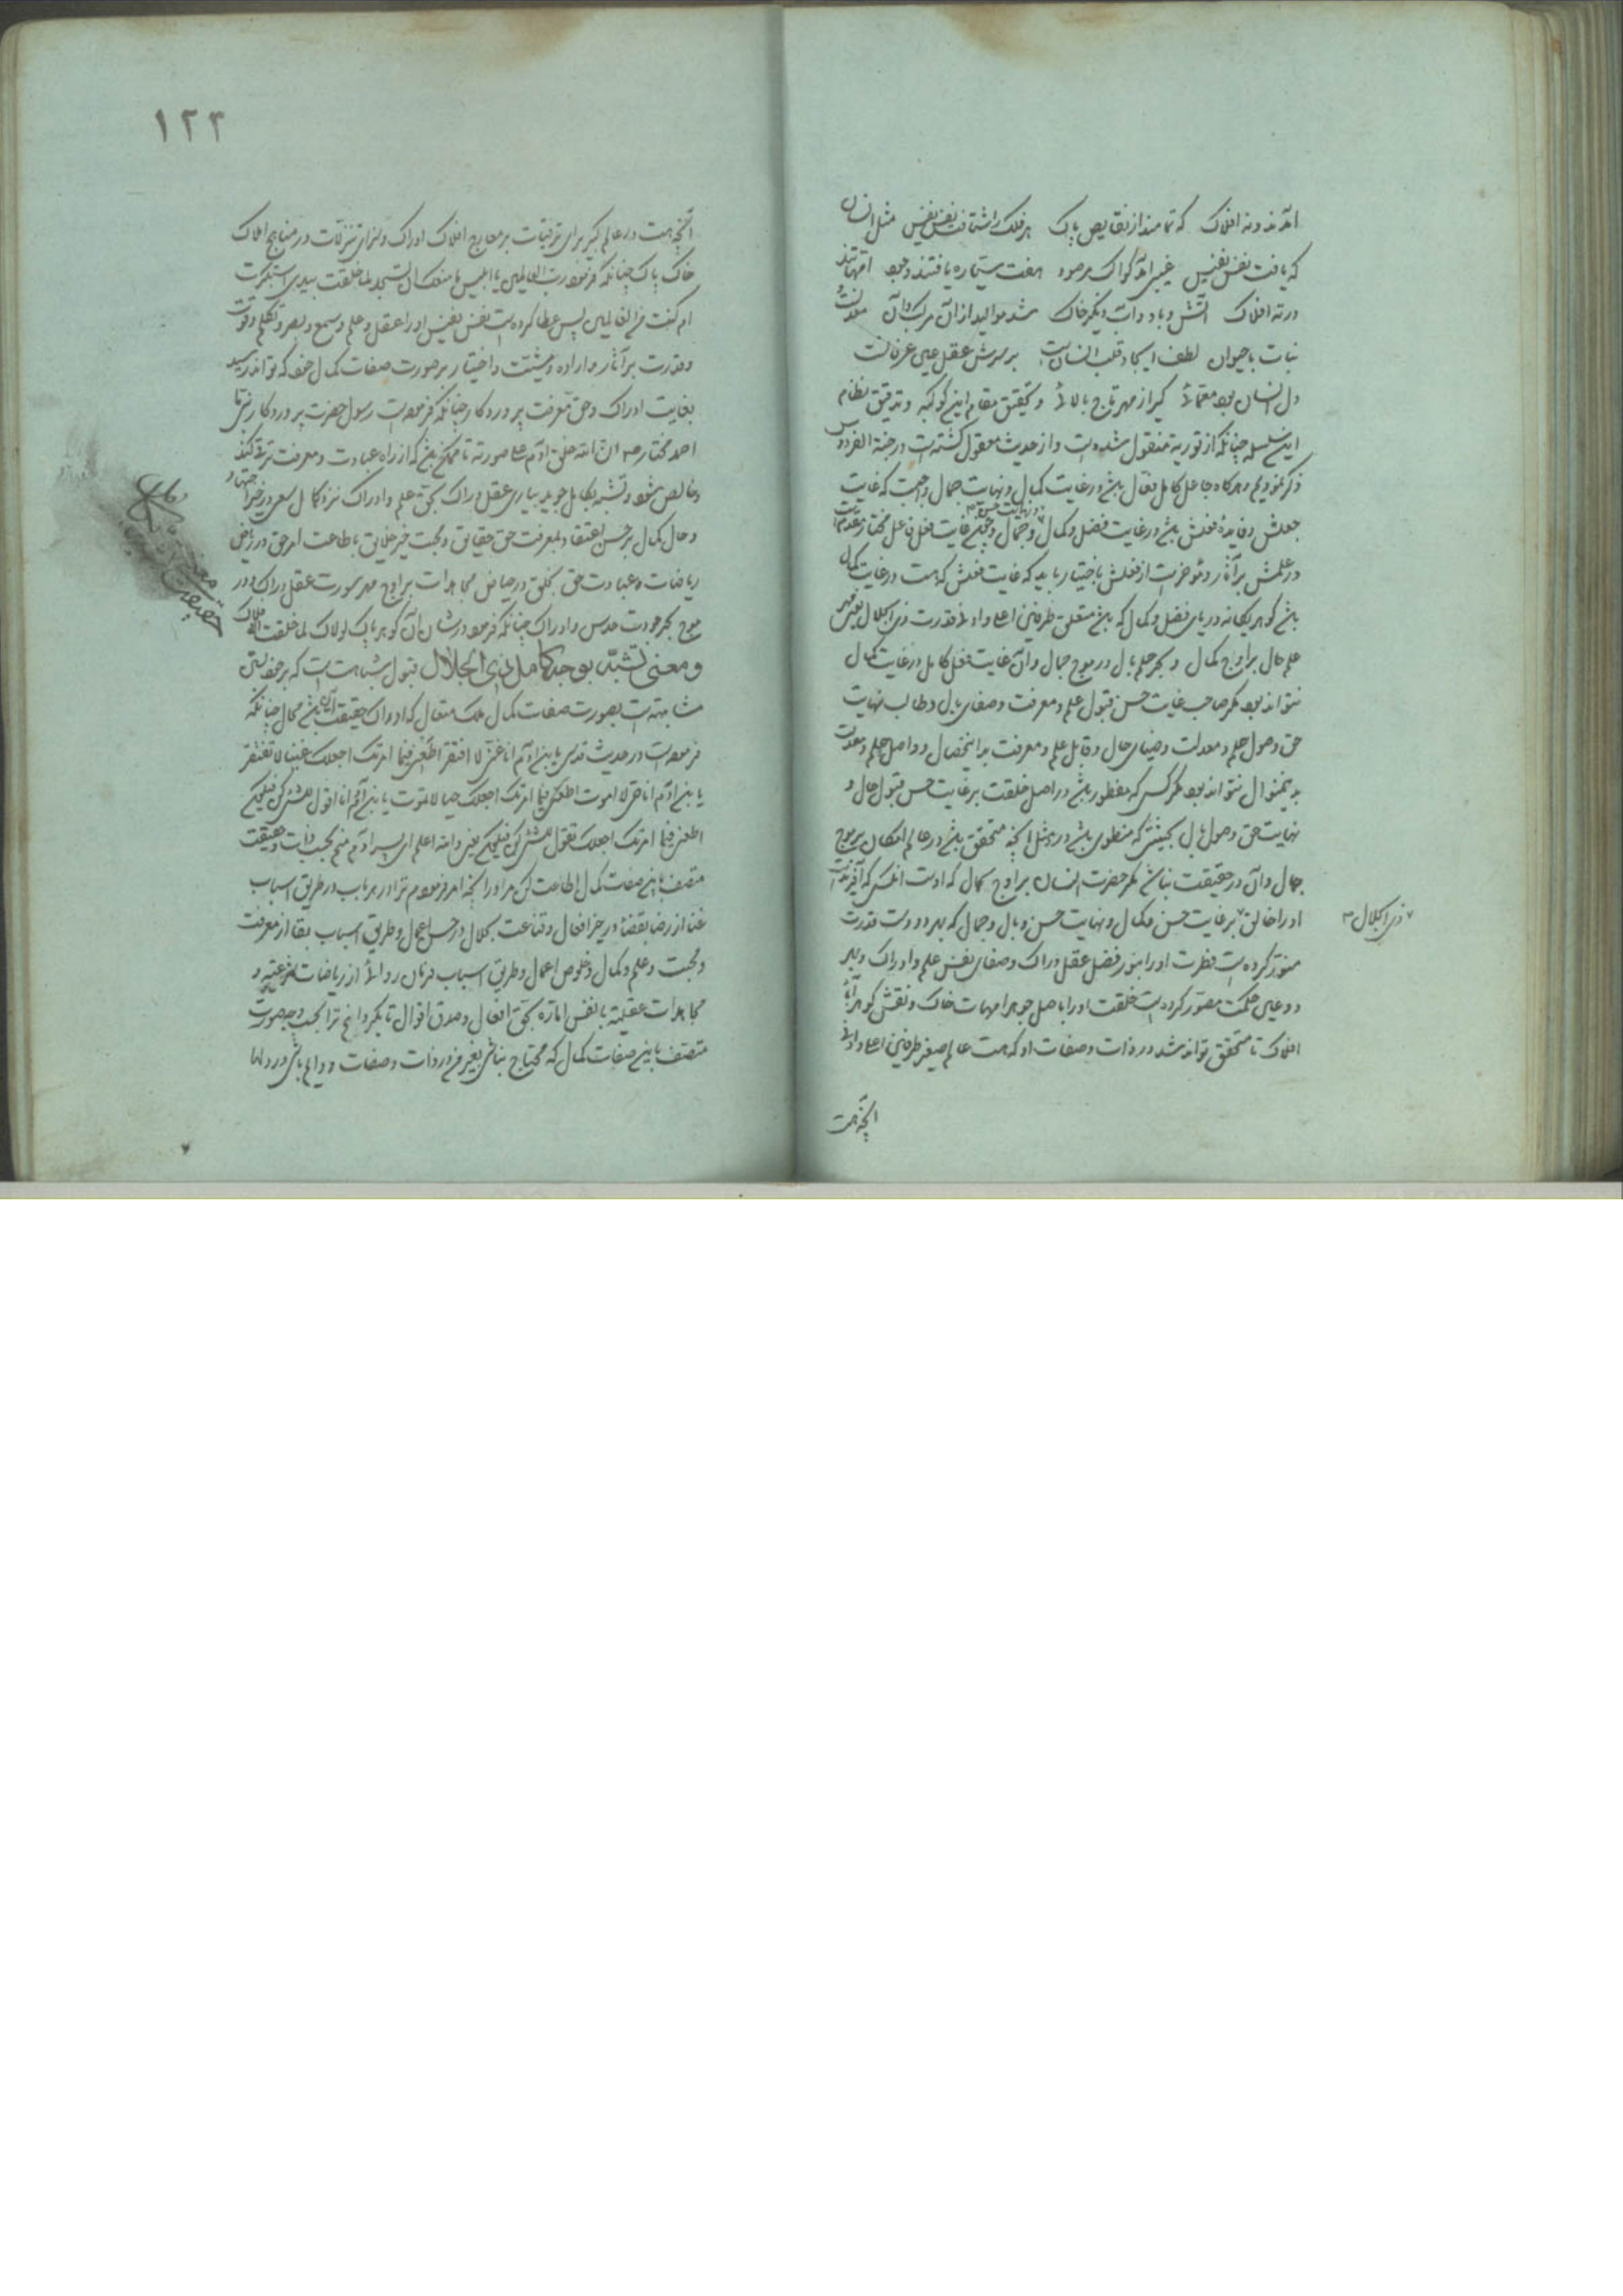 آمدند و نه افلاک که تمامند از نقایص پاک هر فلک را شناخت نفس نفیس مثل انسان
که یافت نفس نفیس غیر آمد هفت ستاره یافتند وجود امهاتند
در ته افلاک آتش و باد و آب دیگر خاک شد موالید از آن مرکب دان معدن و
نبات با حیوان لطف ایجاد قلب انسانست بر سرش عقل عین عرفانست
دل انسان بود معمائی کمتر از مهر تاج بالائی و تحقیق مقام این کوکبه و تدقیق نظام
این سلسله چنانکه از توریة منقول شده است و از حدیث معقول گشته است در جنة الفردوس
ذکر نمودیم و هرگاه جاعل کامل فعال باشد در غایت کمال و نهایت جمال واجبست که غایت
جعلش و فایده فعلش باشد در غایت فضل و کمال و جمال غایت فعل فاعل مختار
و نهایت حسن
در علمش بر آثار و مؤخر است از فعلش باختیار باید که غایت فعلش که هست در غایت کمال
باشد گوهر یگانه دریای فضل و کمال که باشد متعلق طرفین اعلا و ادنی قدرت ذی الجلال یعنی مهر
علم حال بر اوج کمال و بحر حلم بال در موج جمال و آن غایت فعل کامل در غایت کمال
نتواند بود مگر صاحب غایت حسن قبول علم و معرفت و صفای بال و طالب نهایت
حق وصول حلم و معدلت و ضیای حال و قابل علم و معرفت بدا ینخصال و واصل حلم و معدلت
بدینمنوال نتواند بود مگر کسی که مفطور باشد در اصل خلقت بر غایت حسن قبول حال و
نهایت حق وصول بال بحیثیتی که منطوی باشد در آنچه متحقق باشد در عالم امکان بر موج
جمال و آن در حقیقت نباشد مگر حضرت انسان بر اوج کمال که اوست آنکس که آفریده است
او را خالق بر غایت حسن و کمال و نهایت حسن و بال و جمال که بهر دو دست قدرت
ذی الجلال
منور کرده است فطرت او را بنور فضل عقل دراک و صفای نفس علم و ادراک و بهر
دو عین حکمت مصور کرده است خلقت او را باصل جوهر امهات خاک و نقش گوهر آباء
افلاک تا متحقق تواند شد در ذات و صفات او که هست عالم صغیر طرفین اعلا و ادنی
آنچه هست
۱۲۳
آنچه هست در عالم کبیر برای ترقیات بر معارج افلاک ادراک و برای تنزلات در مناهج املاک
خاک پاک چنانکه فرمود رب العالمین یا ابلیس ما منعک ان تسجد لما خلقت بیدی استکبرت
ام کنت من العالین پس عطا کرده است نفس نفیس او را عقل و علم و سمع و بصر و تکلم و قوت
و قدرت بر آثار و اراده و مشیت و اختیار بر صورت صفات کمال خود که تواند رسید
بغایت ادراک و حق معرفت پروردگار چنانکه فرموده است رسول حضرت پروردگار یعنی
احمد مختار ص ان الله خلق آدم علی صورته تا ممکن باشد که از راه عبادت و معرفت ترقی کند
و خالص شود و تشبه بکامل جوید بیاری عقل دراک بحق علم و ادراک نزد کامل سعی در خیر اجتهاد
و حال کمال بر حسن اعتقاد بمعرفت حق حقایق و محبت خیر خلایق باطاعت امر حق در ریاض
ریاضات و عبادت حق بحق در حیاض مجاهدات بر اوج مهر سورت عقل دراک و در
موج بحر جودت حدس و ادراک چنانکه فرمود در شان آن گوهر پاک لولاک لما خلقت الافلاک
و معنی تشبه بوجه کامل لذی الجلال قبول شباهتست که بر خود بستن
مشابهت است بصورت صفات کمال ملک متعال که ادراک حقیقت آن باشد محال چنانکه
فرموده است در حدیث قدسی یا بنی آدم انا غنی لا افتقر اطعنی فیما امرتک اجعلک غنیا لا تفتقر
یا بنی آدم انا حی لا اموت اطعنی فیما امرتک اجعلک حیا لا تموت یا بنی آدم انا اقول للشیء کن فیکون
اطعنی فیما امرتک اجعلک تقول للشیء کن فیکون یعنی و الله اعلم ای پسر آدم منم بحسب ذات و حقیقت
متصف باین صفات کمال اطاعت کن مرا در آنچه امر فرمودم ترا در هر باب در طریق اسباب
غنا از رضا بقضا در خیر افعال و قناعت بحلال در حسن اعمال و طریق اسباب بقا از معرفت
و محبت و علم و کمال و خلوص اعمال و طریق اسباب از ریاضات شرعیه و
مجاهدات عقلیه با نفس اماره بحق افعال و صدق اقوال تا بگردانم ترا بحسب وجه صورت
متصف باین صفات کمال که محتاج نباشی بغیر من در ذات و صفات و دایم باشی در دلها